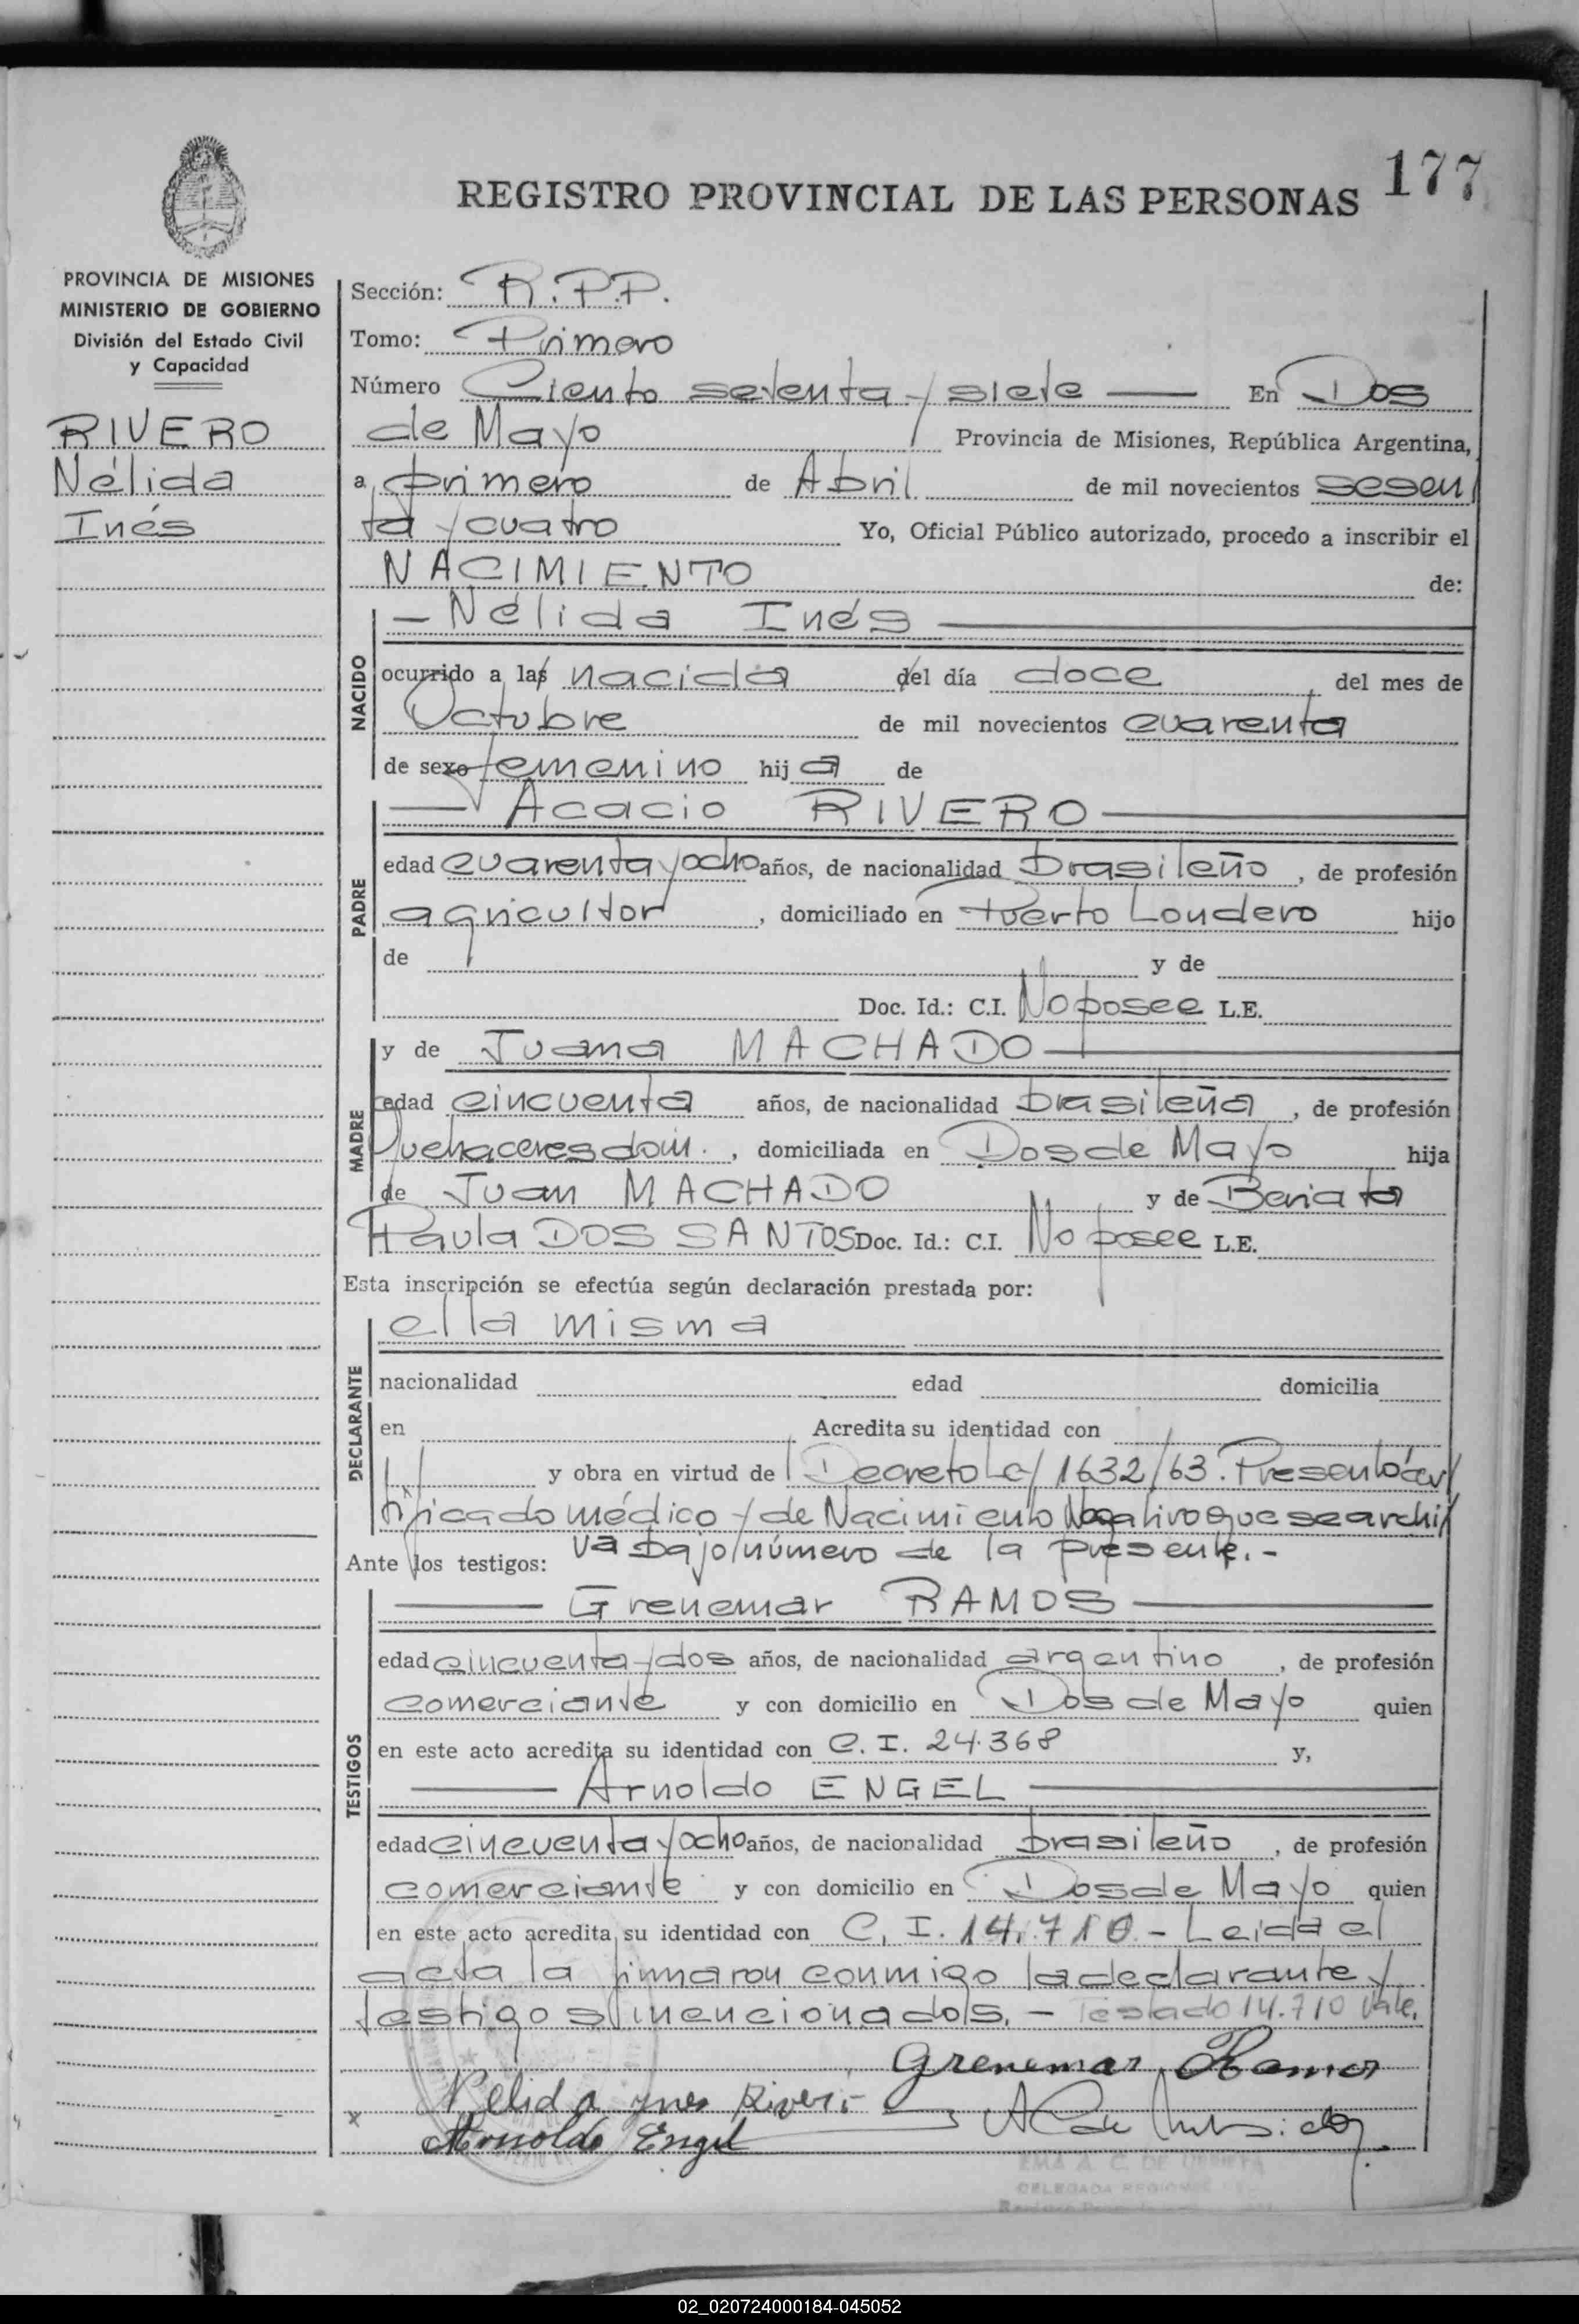 177
REGISTRO PROVINCIAL DE LAS PERSONAS
PROVINCIA DE MISIONES
MINISTERIO DE GOBIERNO
División del Estado Civil
y Capacidad
RIVERO
Nélida
Inés
Sección: R.P.P.
Tomo: Primero
Número Ciento setenta y siete — En Dos
de Mayo Provincia de Misiones, República Argentina,
a primero de Abril de mil novecientos sesen
ta y cuatro Yo, Oficial Público autorizado, procedo a inscribir el
NACIMIENTO de:
NACIDO
— Nélida Inés —
ocurrido a las nacida del día doce del mes de
Octubre de mil novecientos cuarenta
de sexo femenino hij a de
PADRE
— Acacio RIVERO —
edad cuarenta y ocho años, de nacionalidad brasileño, de profesión
agricultor, domiciliado en Puerto Londero hijo
de y de
Doc. Id.: C.I. No posee L.E.
MADRE
y de Juana MACHADO —
edad cincuenta años, de nacionalidad brasileña, de profesión
Quehaceres dom., domiciliada en Dos de Mayo hija
de Juan MACHADO y de
Paula DOS SANTOS Doc. Id.: C.I. No posee L.E.
Esta inscripción se efectúa según declaración prestada por:
DECLARANTE
ella misma
nacionalidad edad domicilia
en Acredita su identidad con
y obra en virtud de Decreto 1632/63. Presentó cer
tificado médico y de Nacimiento Negativo que se archi
va bajo número de la presente.-
Ante los testigos:
TESTIGOS
— Grenemar RAMOS —
edad cincuenta y dos años, de nacionalidad argentino, de profesión
comerciante y con domicilio en Dos de Mayo quien
en este acto acredita su identidad con C.I. 24.368 y,
— Arnoldo ENGEL —
edad cincuenta y ocho años, de nacionalidad brasileño, de profesión
comerciante y con domicilio en Dos de Mayo quien
en este acto acredita su identidad con C.I. 14.710 - Leida el
acta la firmaron conmigo la declarante y
testigos mencionados. - Testado 14.710 Vale.
Grenemar Ramos
x Nelida ynes Rivero
Arnoldo Engel
EMA A. C. DE URRIETA
DELEGADA
02_020724000184-045052